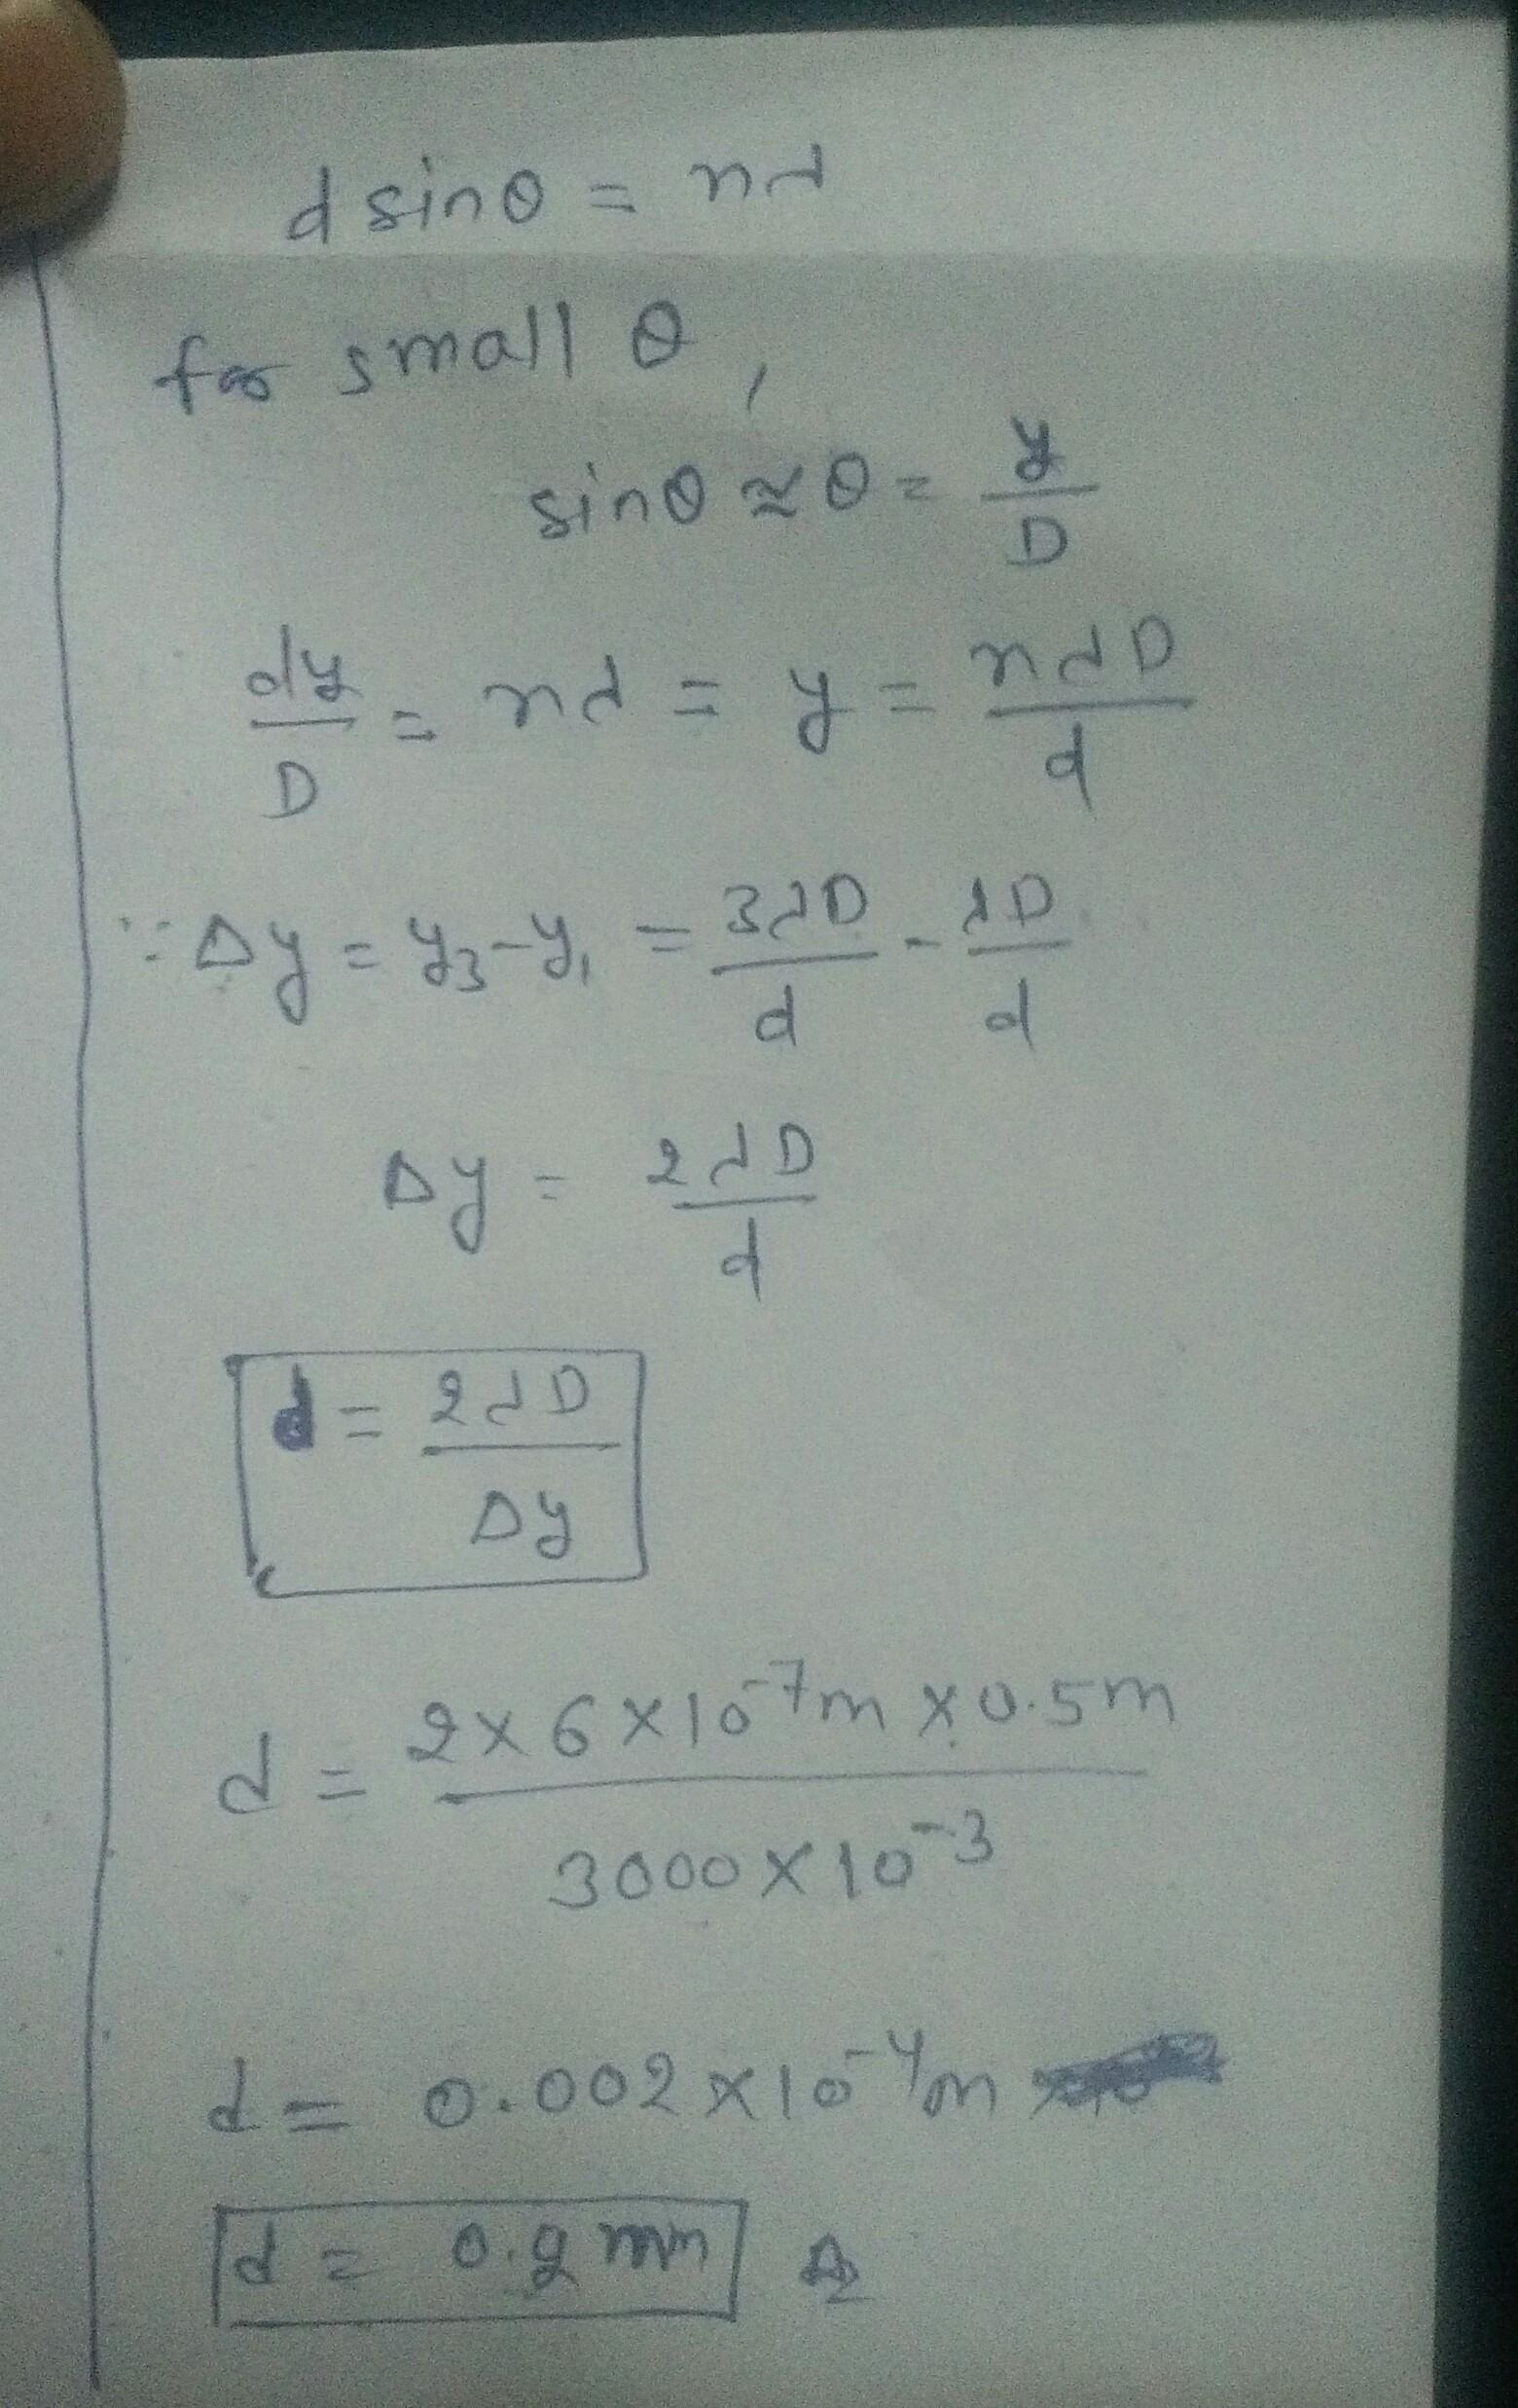 d sinθ = nλ
for small θ,
sinθ ≈ θ = y/D
dy/D = nλ = y = nλD/d
∵ Δy = y₃-y₁ = 3λD/d - λD/d
Δy = 2λD/d
d = 2λD/Δy
d = 2×6×10⁻⁷m×0.5m / 3000×10⁻³
d = 0.002×10⁻⁴m
d = 0.2 mm